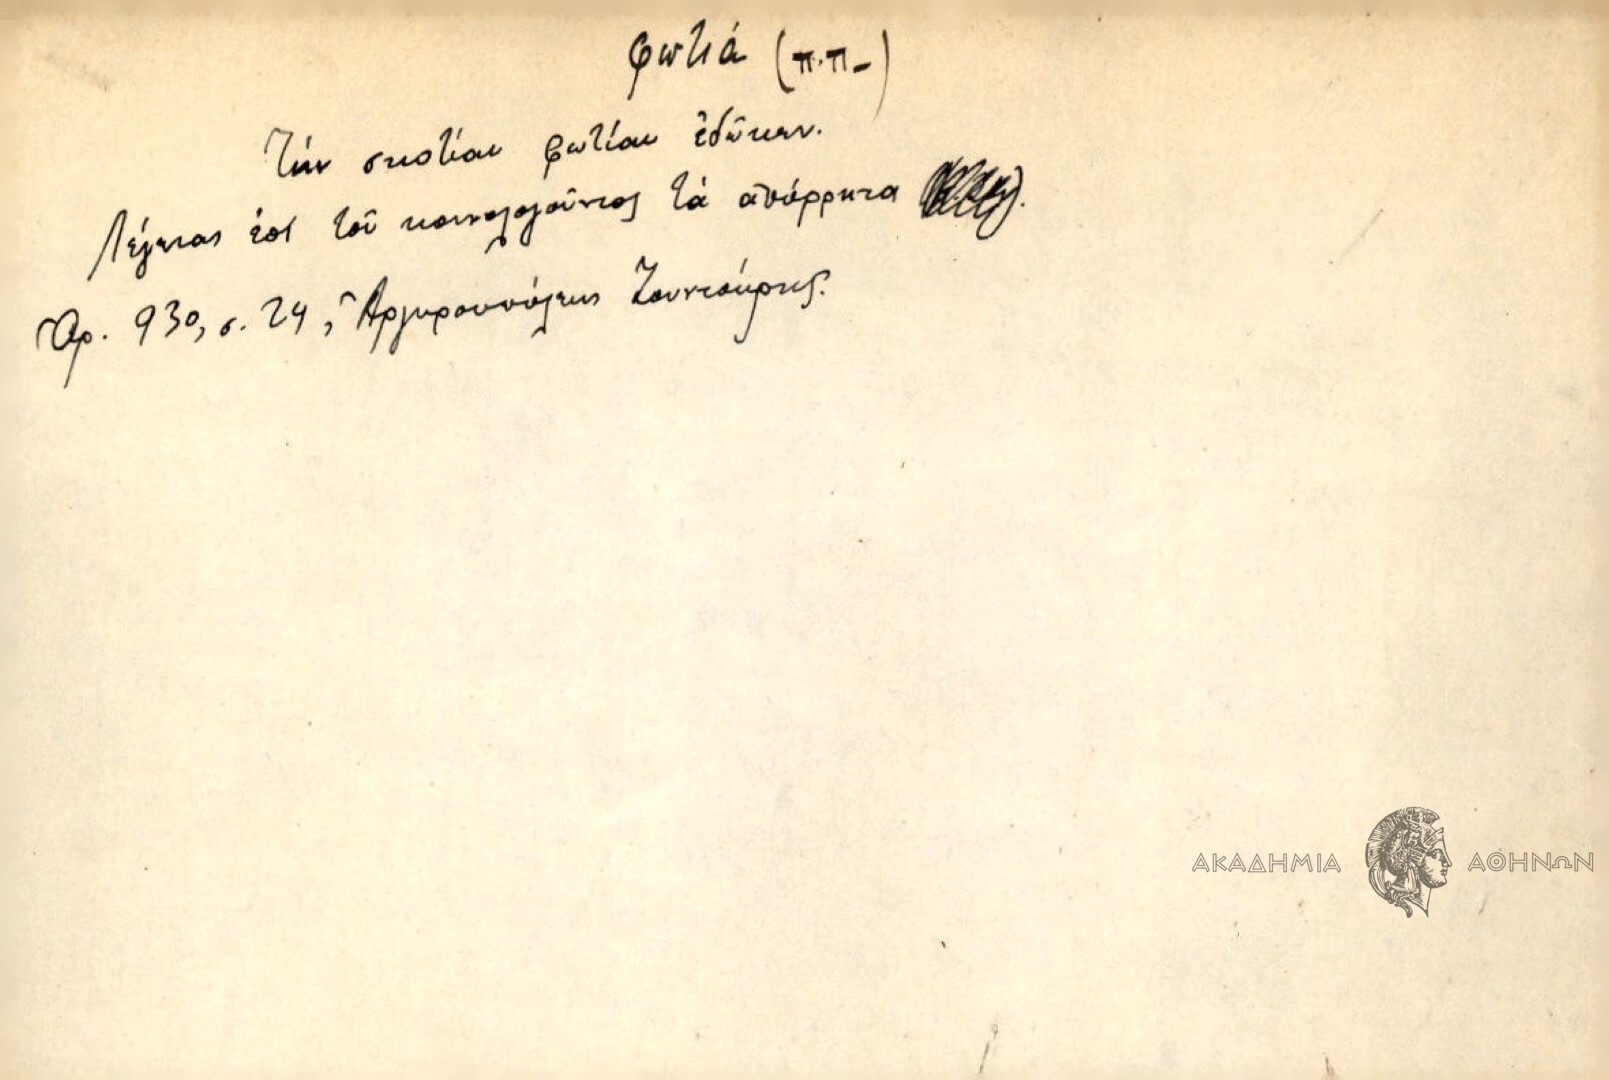 φωτιά (π.π-)
Τὴν σκοτίαν φωτίαν ἐδῶκεν.
Λέγεται ἐπὶ τοῦ κοινολογοῦντος τὰ ἀπόρρητα
Ἀρ. 930, σ. 24, Ἀργυρουπόλεως
ΑΚΑΔΗΜΙΑ ΑΘΗΝΩΝ